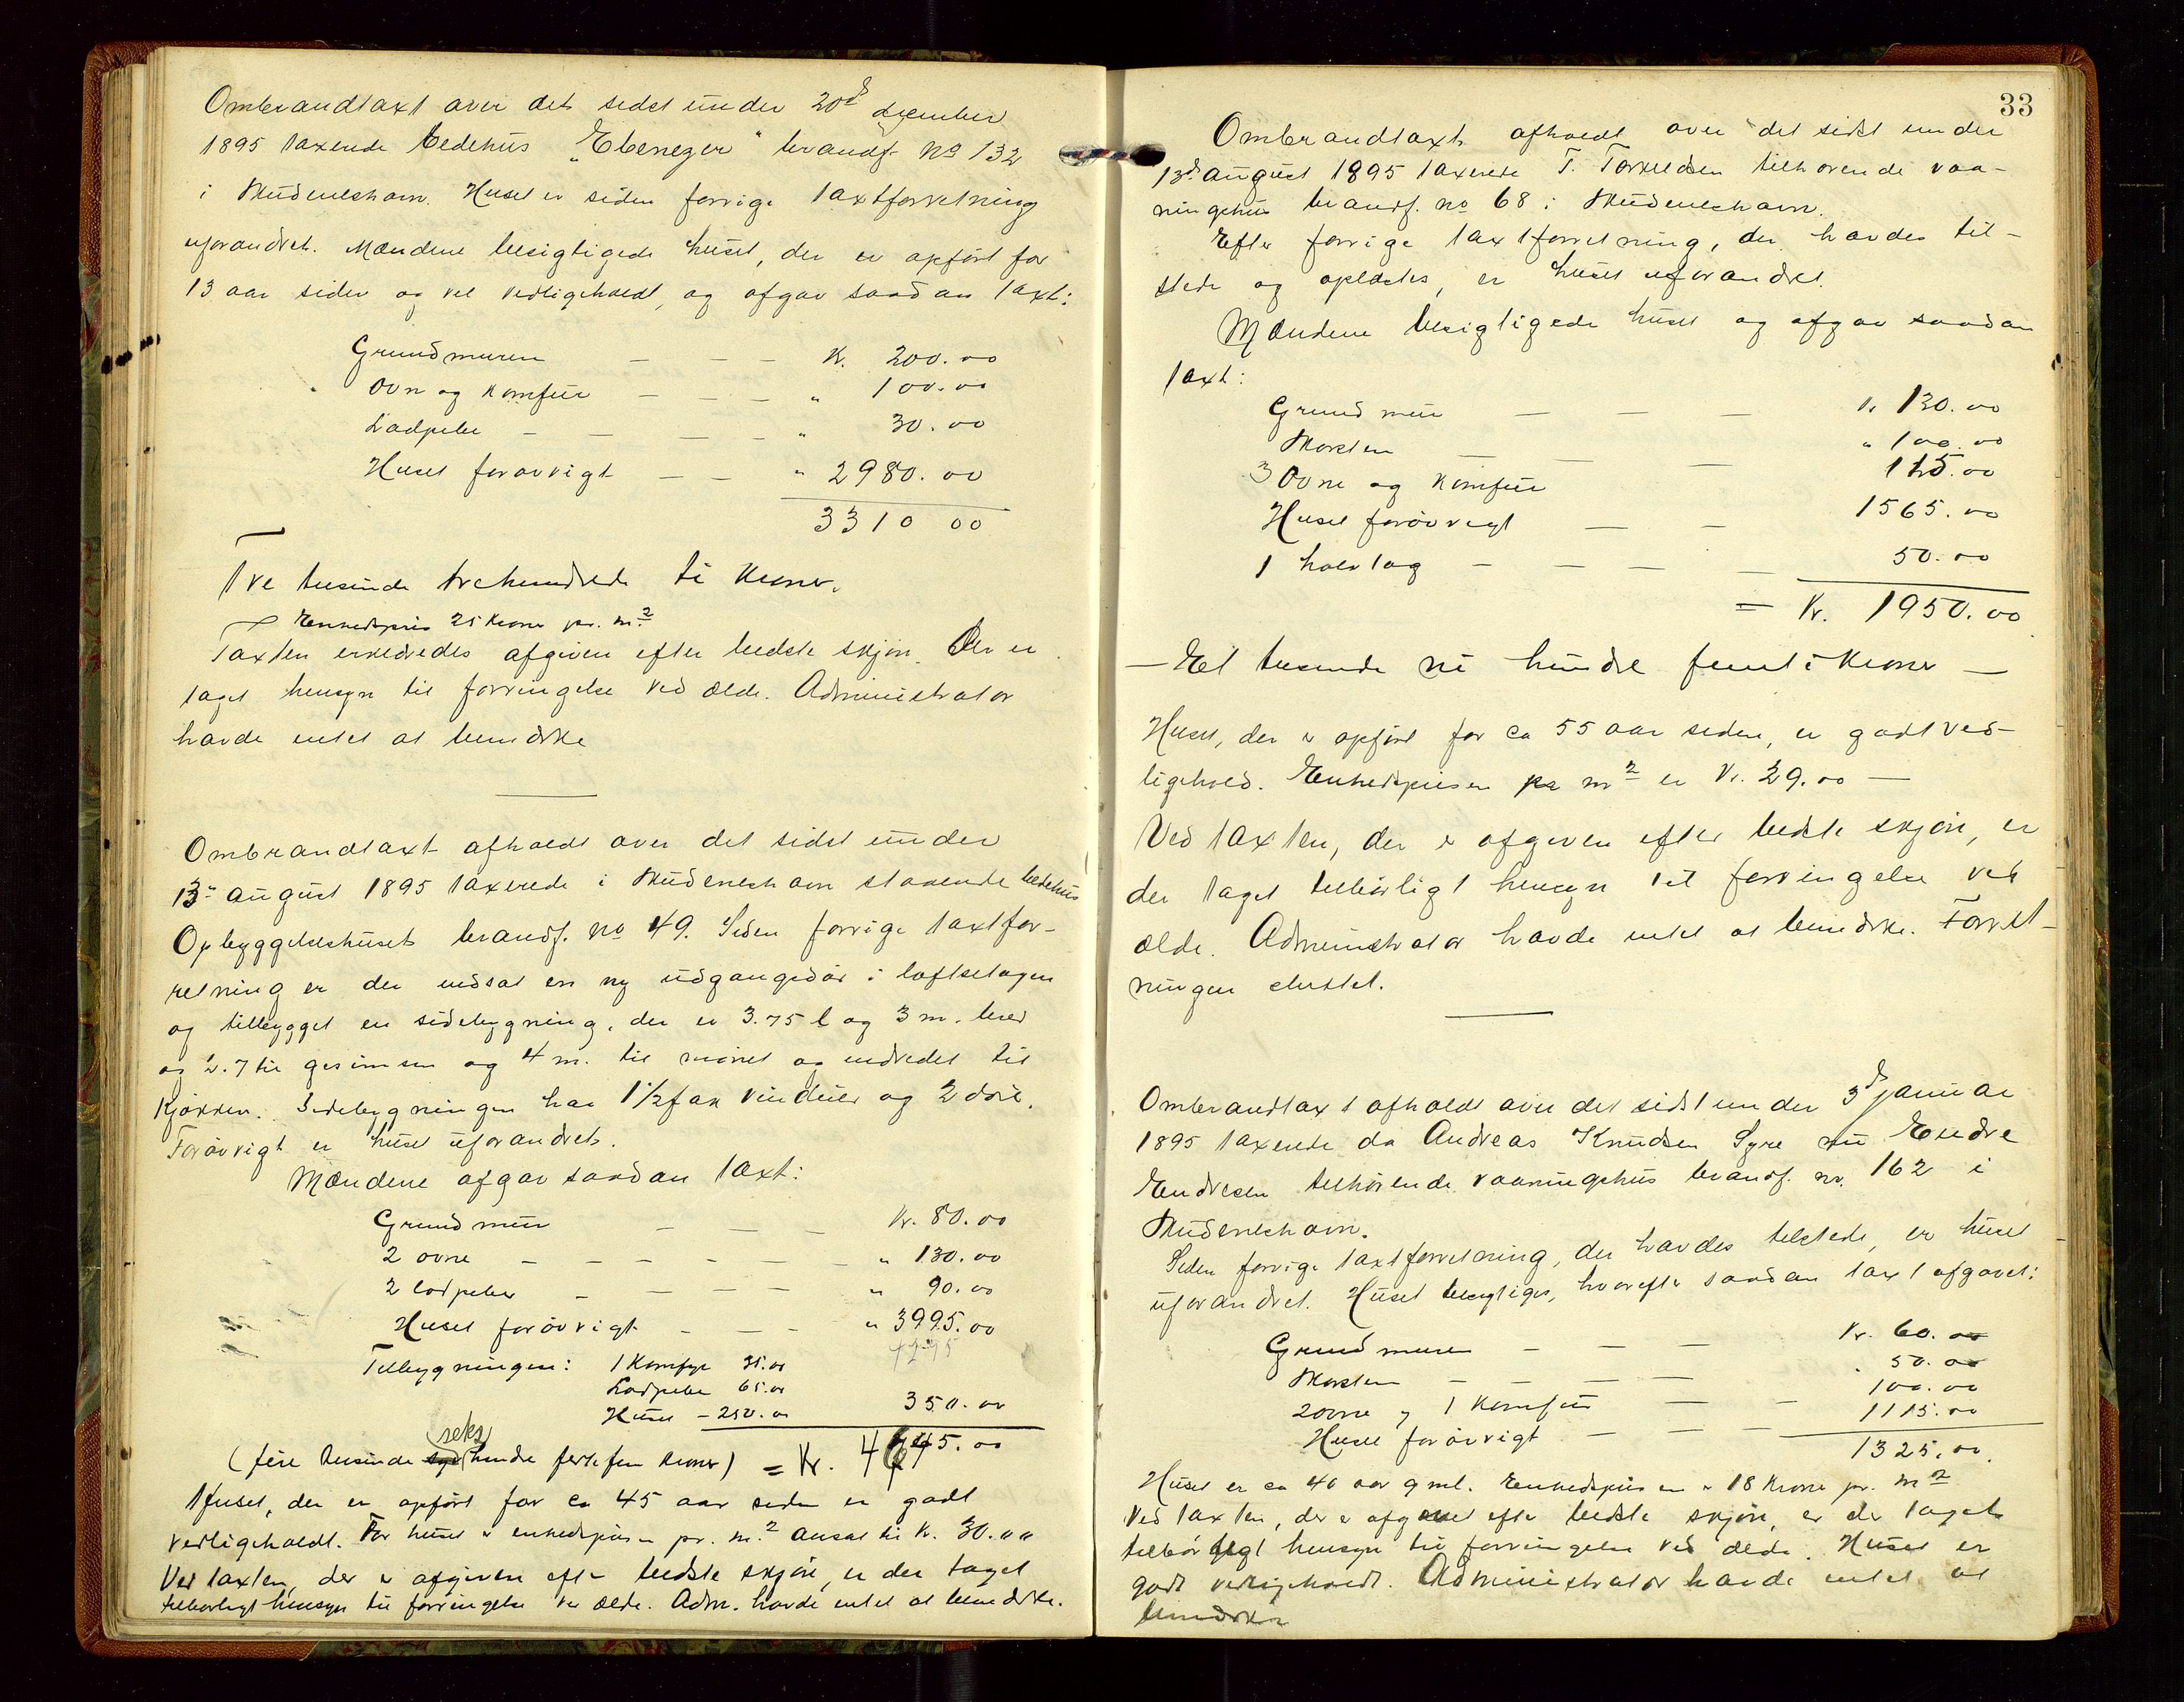 Ombrandtaxt over det sidst under 20d december
1895 taxerede bedehus "Ebenezer" brandf. No 132
i Skudeneshavn. Huset er siden forrige taxtforretning
uforandret. Mændene besigtigede huset, der er opført for
13 aar siden og vel vedligeholdt, og afgav saadan taxt:
Grundmuren — — — Kr. 200.00
Ovn og komfur — — — " 100.00
Ladpibe — — — — " 30.00
Huset forøvrigt — — " 2980.00
3310 00
Tre tusinde trehundrede ti kroner.
Enhedspris 25 kroner pr. m2
Taxten erklæredes afgiven efter bedste skjøn. Der er
taget hensyn til forringelse ved ælde. Administrator
havde intet at bemærke
Ombrandtaxt afholdt over det sidst under
13de august 1895 taxerede i Skudeneshavn staaende bedehus
Opbyggelseshuset brandf. No 49. Siden forrige taxtfor-
retning er der indsat en ny udgangsdør i loftsetagen
og tilbygget en sidebygning, der er 3.75 l og 3 m. bred
og 2.7 til gesimsen og 4 m. til mønet og indredet til
kjøkken. Sidebygningen har 1 1/2 fax vinduer og 2 døre.
Forøvrigt er huset uforandret.
Mændene afgav saadan taxt:
Grundmur — — — Kr. 80.00
2 ovne — — — — — — " 130.00
2 ladpiber — — — — " 90.00
Huset forøvrigt — — — " 3995.00
Tilbygningen: 1 Komfyr 35.00
Ladpibe 65.00
Huset — 250.00 350.00
(fire tusinde seks hundre førtifem kroner) = Kr. 4645.00
Huset, der er opført for ca 45 aar siden er godt
vedligeholdt. For huset er enhedsprisen pr. m2 ansat til Kr. 30.00
Ved taxten, der er afgiven efter bedste skjøn, er der taget
tilbørligt hensyn til forringelse ved ælde. Adm. havde intet at bemærke.
33
Ombrandtaxt afholdt over det sidst under
13de august 1895 taxerede T. Torkeldsen tilhørende vaa-
ningshus brandf. no 68 i Skudeneshavn.
Efter forrige taxtforretning, der havdes til-
stede og oplæstes, er huset uforandret.
Mændene besigtigede huset og afgav saadan
taxt:
Grundmur — — — Kr 130.00
Skorsten — — — " 100.00
3 Ovne og komfur 125.00
Huset forøvrigt — — 1565.00
1 halvtag — — — — 50.00
= Kr. 1950.00
— Et tusinde ni hundre femti kroner —
Huset, der er opført for ca 55 aar siden, er godt ved-
ligehold. Enhedsprisen pr m2 er Kr. 29.00 —
Ved taxten, der er afgiven efter bedste skjøn, er
der taget tilbørligt hensyn til forringelse ved
ælde. Administrator havde intet at bemærke. Forret-
ningen sluttet.
Ombrandtaxt afholdt over det sidst under 3d januar
1895 taxerede da Andreas Knudsen Syre nu Endre
Endresen tilhørende vaaningshus brandf. nr. 162 i
Skudeneshavn.
Siden forrige taxtforretning, der havdes tilstede, er huset
uforandret. Huset besigtiges, hvorefter saadan taxt afgavet:
Grundmuren — — — Kr. 60.00
Skorsten — — — — 50.00
2 ovne og 1 komfur — — 100.00
Huset forøvrigt — — — 1115.00
1325.00
Huset er ca 40 aar gml. Enhedsprisen er 18 Kroner pr. m2
Ved taxten, der er afgivet efter bedste skjøn, er der taget
tilbørligt hensyn til forringelse ved ælde. Huset er
godt vedligeholdt. Administrator havde intet at
bemærke